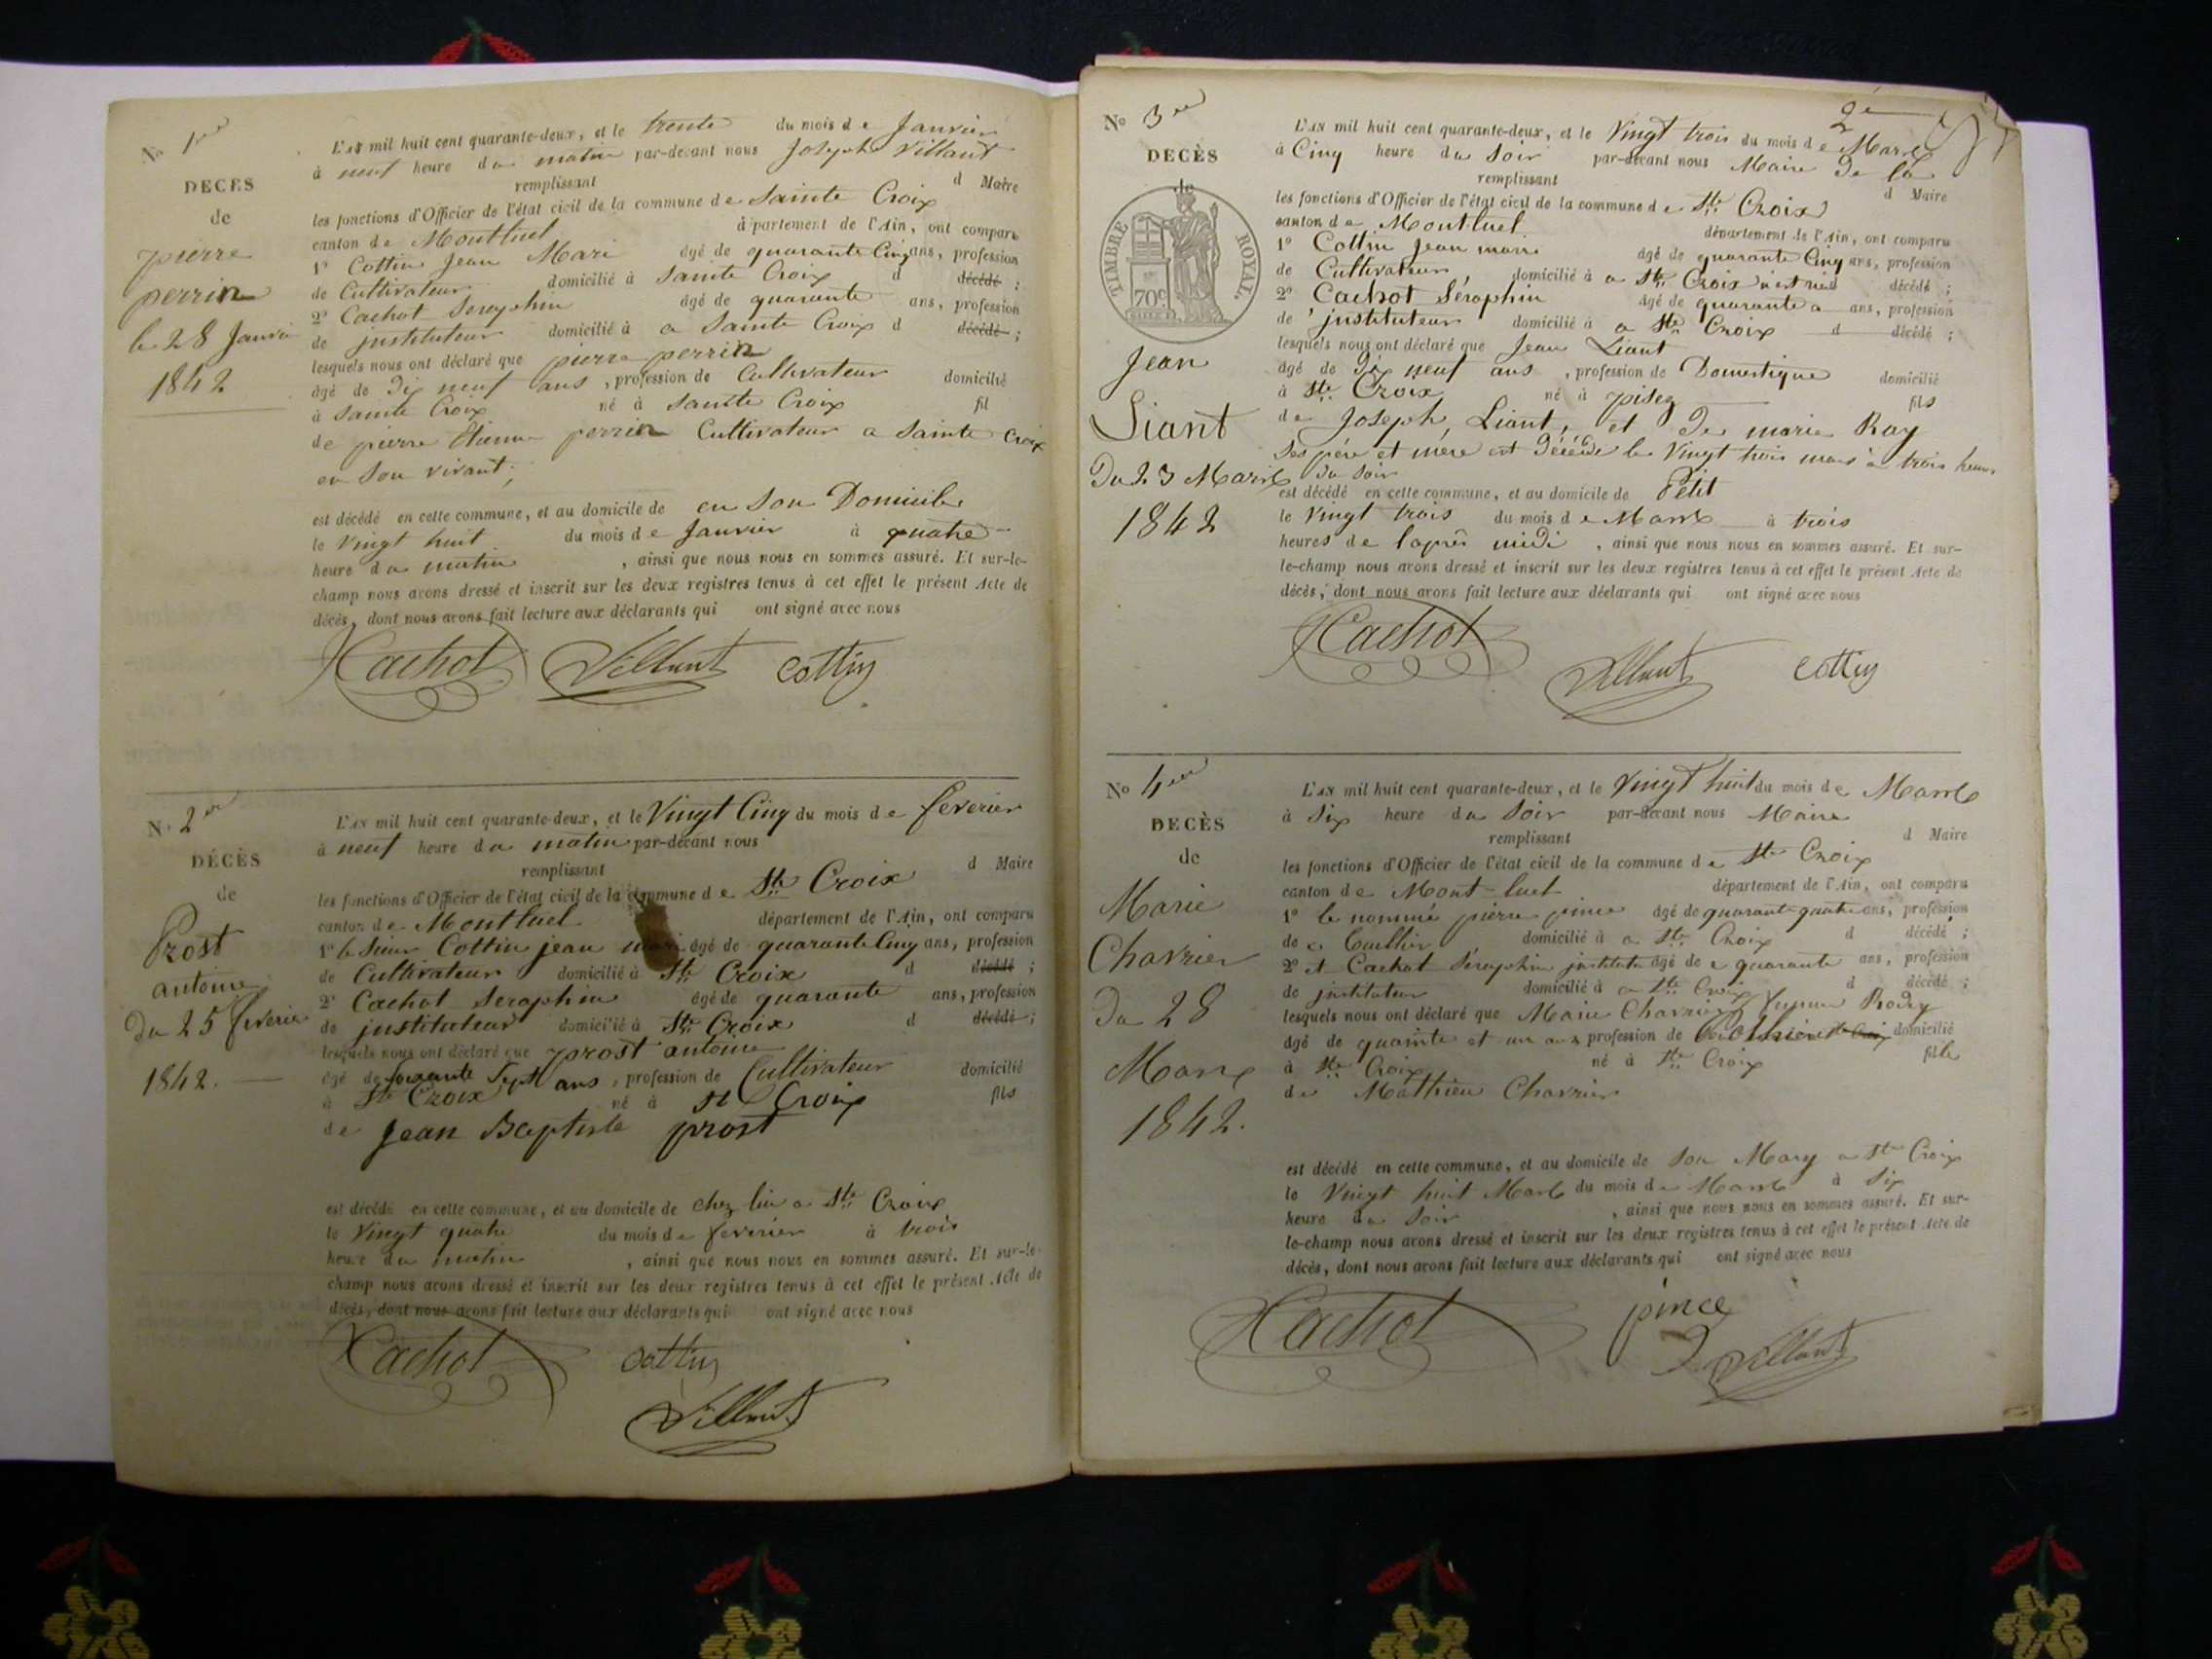 No 1er
DECÈS
de
pierre
perrin
le 28 Janvier
1842
L'AN mil huit cent quarante-deux, et le trente du mois de Janvier
à neuf heure du matin par-devant nous Joseph Villant
remplissant d Maire
les fonctions d'Officier de l'état civil de la commune de Sainte Croix
canton de Montluel département de l'Ain, ont comparu
1° Cottin Jean Mari âgé de quarante Cinq ans, profession
de Cultivateur domicilié à Sainte Croix d décédé ;
2° Cachot Seraphin âgé de quarante ans, profession
de instituteur domicilié à a Sainte Croix d décédé ;
lesquels nous ont déclaré que pierre perrin
âgé de dix neuf ans, profession de Cultivateur domicilié
à Sainte Croix né à Sainte Croix fil
de pierre Etienne perrin Cultivateur a Sainte Croix
en Son vivant ;
est décédé en cette commune, et au domicile de en Son Domicile
le Vingt huit du mois de Janvier à quatre
heure du matin, ainsi que nous nous en sommes assuré. Et sur-le-
champ nous avons dressé et inscrit sur les deux registres tenus à cet effet le présent Acte de
décès, dont nous avons fait lecture aux déclarants qui ont signé avec nous
Cachot Villant Cottin
No 2
DÉCÈS
de
Prost
antoine
Du 25 feverier
1842.
L'AN mil huit cent quarante-deux, et le Vingt Cinq du mois de feverier
à neuf heure du matin par-devant nous
remplissant d Maire
les fonctions d'Officier de l'état civil de la commune de Ste Croix
canton de Montluel département de l'Ain, ont comparu
1° le Sieur Cottin jean mari âgé de quarante Cinq ans, profession
de Cultivateur domicilié à Ste Croix d décédé ;
2° Cachot Seraphin âgé de quarante ans, profession
de instituteur domicilié à Ste Croix d décédé ;
lesquels nous ont déclaré que prost antoine
âgé de Soixante Sept ans, profession de Cultivateur domicilié
à Ste Croix né à St Croix fils
de Jean Baptiste prost
est décédé en cette commune, et au domicile de chez lui a Ste Croix
le Vingt quatre du mois de feverier à trois
heure du matin, ainsi que nous nous en sommes assuré. Et sur-le-
champ nous avons dressé et inscrit sur les deux registres tenus à cet effet le présent Acte de
décès, dont nous avons fait lecture aux déclarants qui ont signé avec nous
Cachot Cottin
Villant
No 3
DECÈS
de
TIMBRE ROYAL.
70c
Jean
Liant
Du 23 Mars
1842
2e
L'AN mil huit cent quarante-deux, et le Vingt trois du mois de Mars
à Cinq heure du Soir par-devant nous Maire De la
remplissant d Maire
les fonctions d'Officier de l'état civil de la commune de Ste Croix
canton de Montluel département de l'Ain, ont comparu
1° Cottin Jean mari âgé de quarante Cinq ans, profession
de Cultivateur, domicilié à a Ste Croix décédé ;
2° Cachot Séraphin âgé de quarante ans, profession
de instituteur domicilié à a Ste Croix d décédé ;
lesquels nous ont déclaré que Jean Liant
âgé de Dix neuf ans, profession de Domestique domicilié
à Ste Croix né à pisez fils
de Joseph Liant, et De marie Ray
Ses père et mère est Décédé le Vingt trois mars a trois heures
du Soir
est décédé en cette commune, et au domicile de Petit
le Vingt trois du mois de Mars à trois
heures de l'après midi, ainsi que nous nous en sommes assuré. Et sur-
le-champ nous avons dressé et inscrit sur les deux registres tenus à cet effet le présent Acte de
décès, dont nous avons fait lecture aux déclarants qui ont signé avec nous
Cachot Villant Cottin
No 4
DECÈS
de
Marie
Chavrier
Du 28
Mars
1842.
L'AN mil huit cent quarante-deux, et le Vingt huit du mois de Mars
à Six heure du Soir par-devant nous Maire
remplissant d Maire
les fonctions d'Officier de l'état civil de la commune de Ste Croix
canton de Mont-luel département de l'Ain, ont comparu
1° le nommé pierre pince âgé de quarante quatre ans, profession
de domicilié à a Ste Croix d décédé ;
2° et Cachot Séraphin institut âgé de quarante ans, profession
de instituteur domicilié à a Ste Croix d décédé ;
lesquels nous ont déclaré que Marie Chavrier
âgé de et un ans profession de domicilié
à Ste Croix né à Ste Croix fille
de Mathieu Chavrier
est décédé en cette commune, et au domicile de Son Mary a Ste Croix
le Vingt huit Mars du mois de Mars à Six
heure du Soir, ainsi que nous nous en sommes assuré. Et sur-
le-champ nous avons dressé et inscrit sur les deux registres tenus à cet effet le présent Acte de
décès, dont nous avons fait lecture aux déclarants qui ont signé avec nous
Cachot pince
Villant